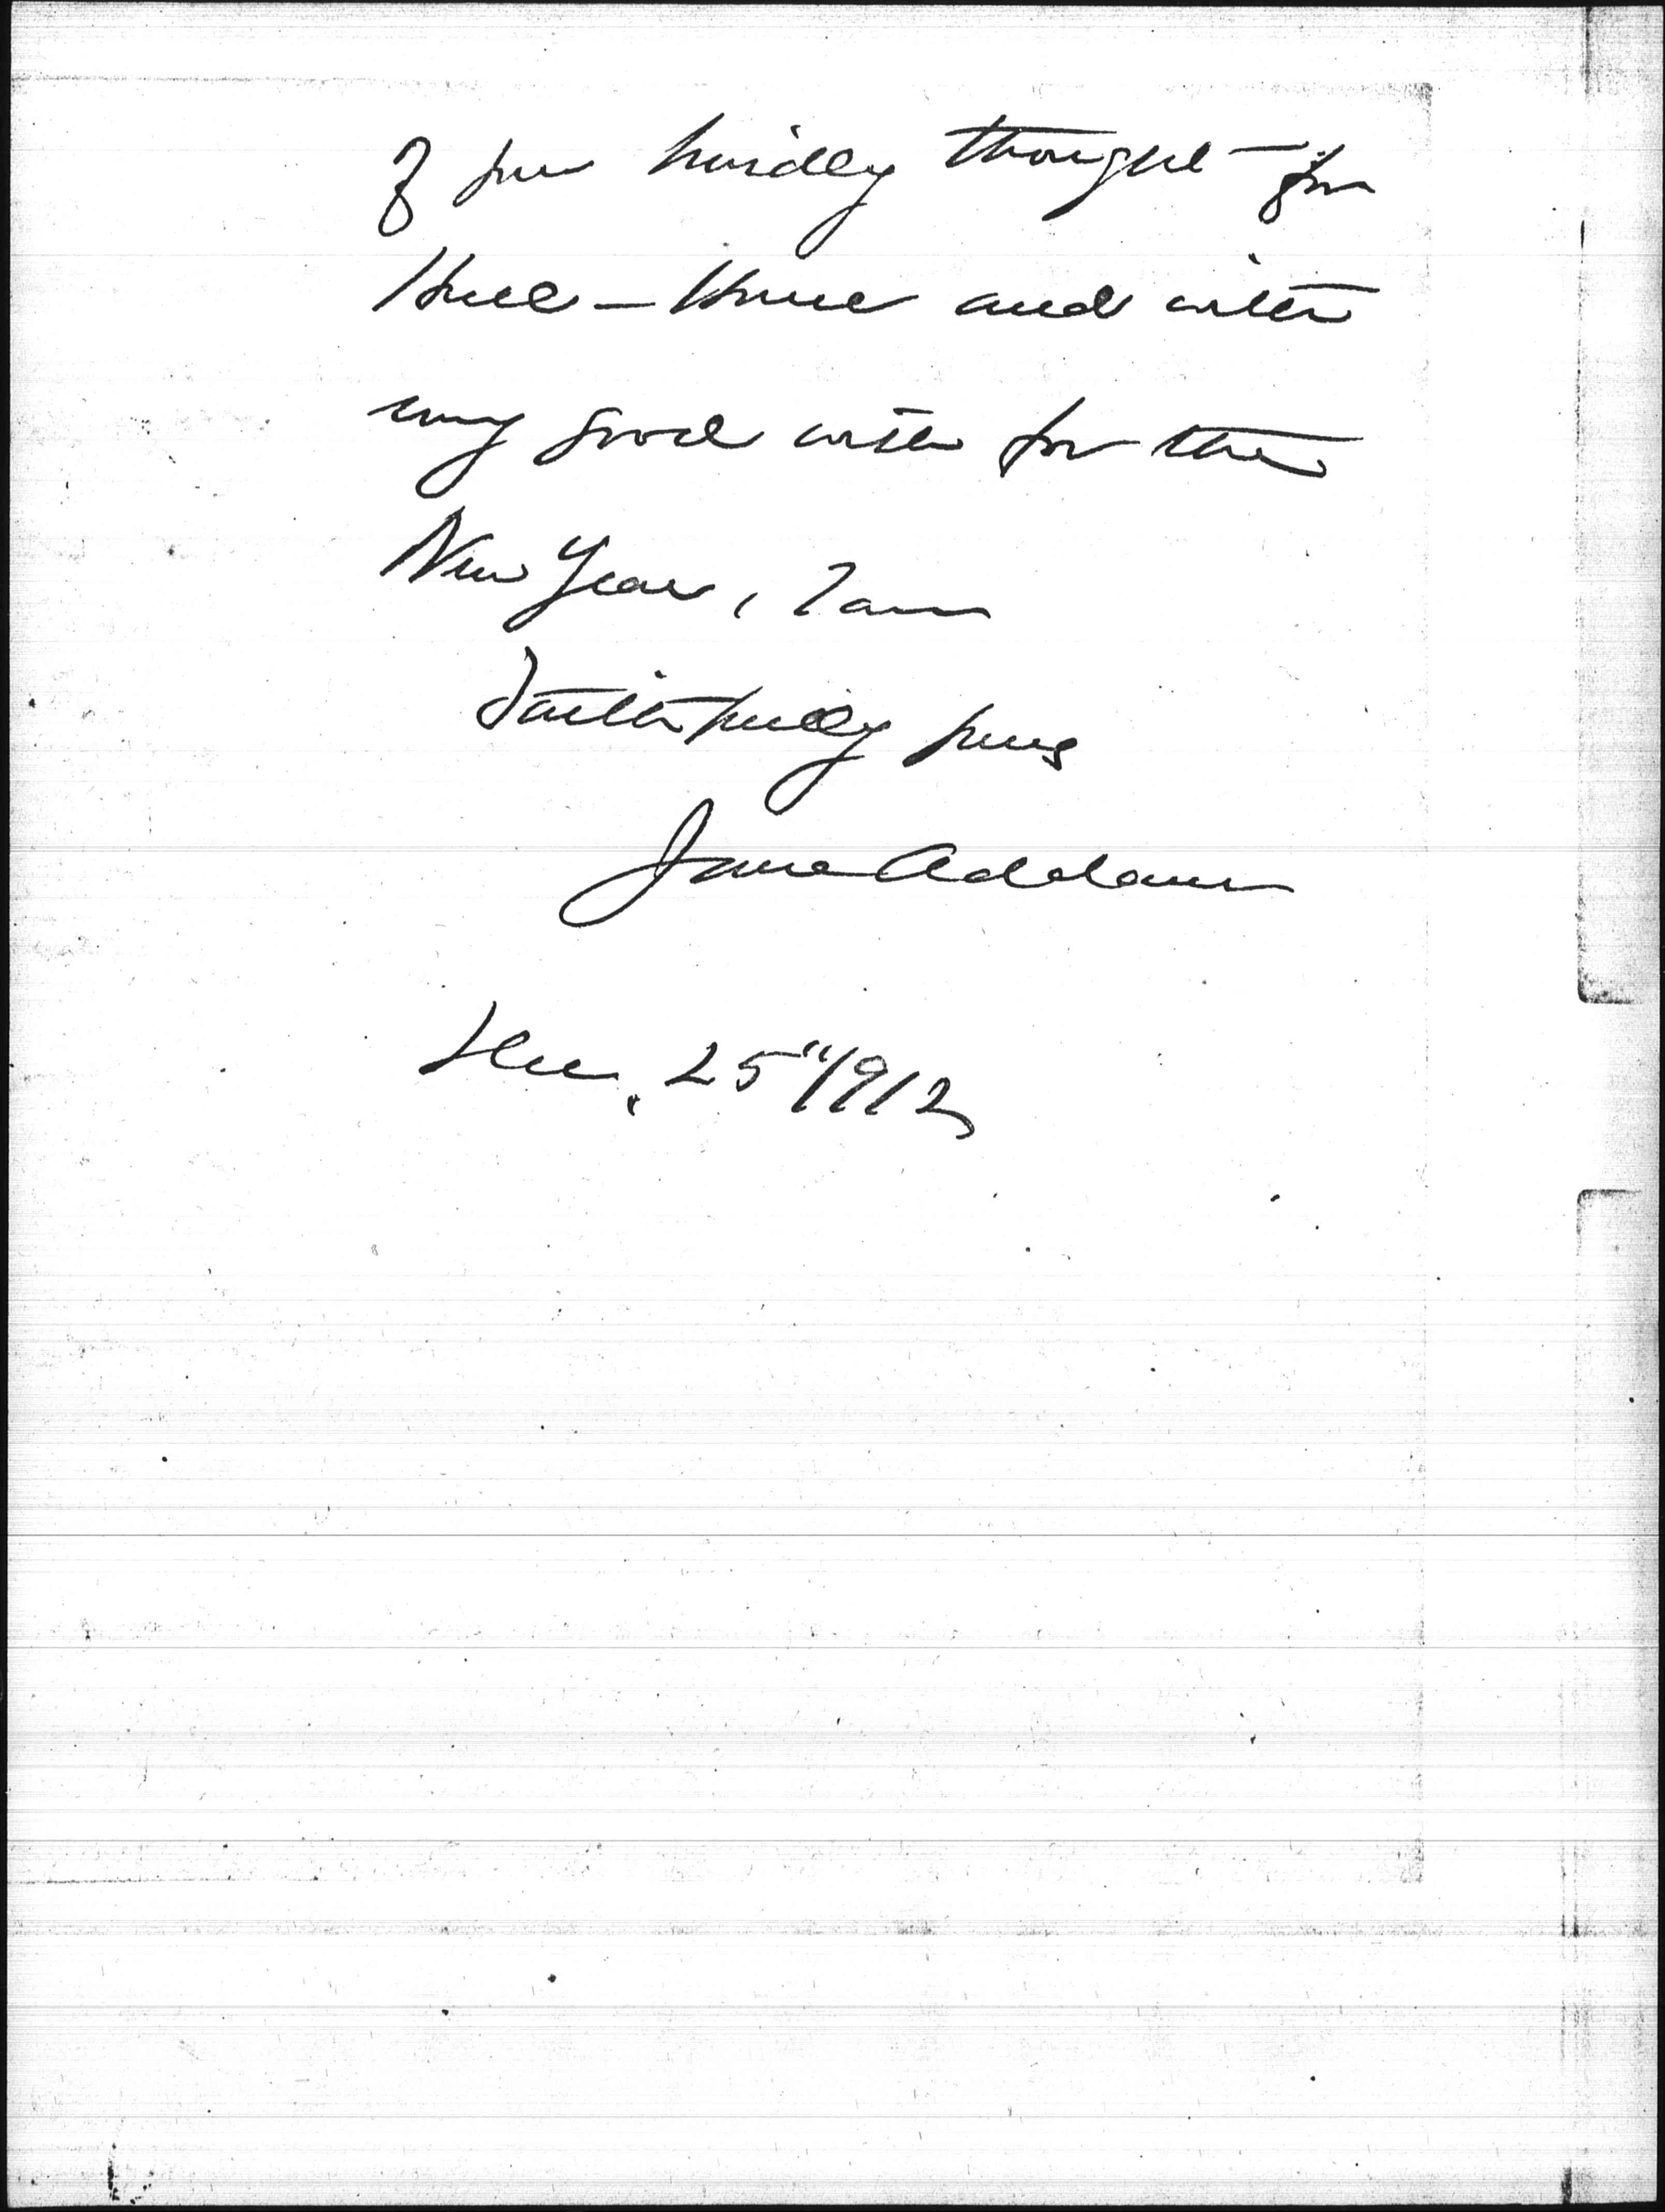 of your kindly thought for
Hull-House and with
my good wish for the
New Year, I am
Faithfully yours
Jane Addams
Dec. 25" 1912